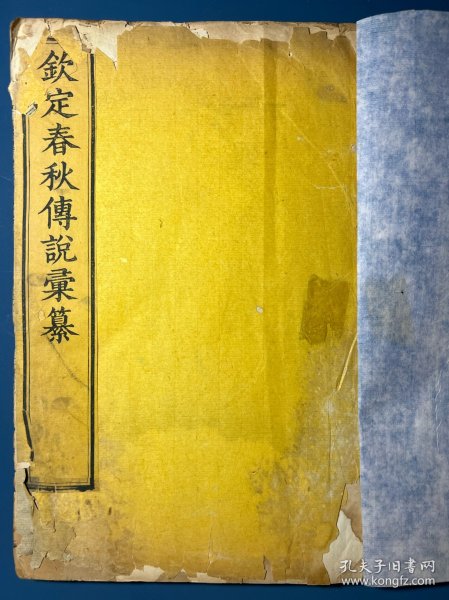 欽定春秋傳說彙纂
孔夫子旧书网
www.kongfz.com